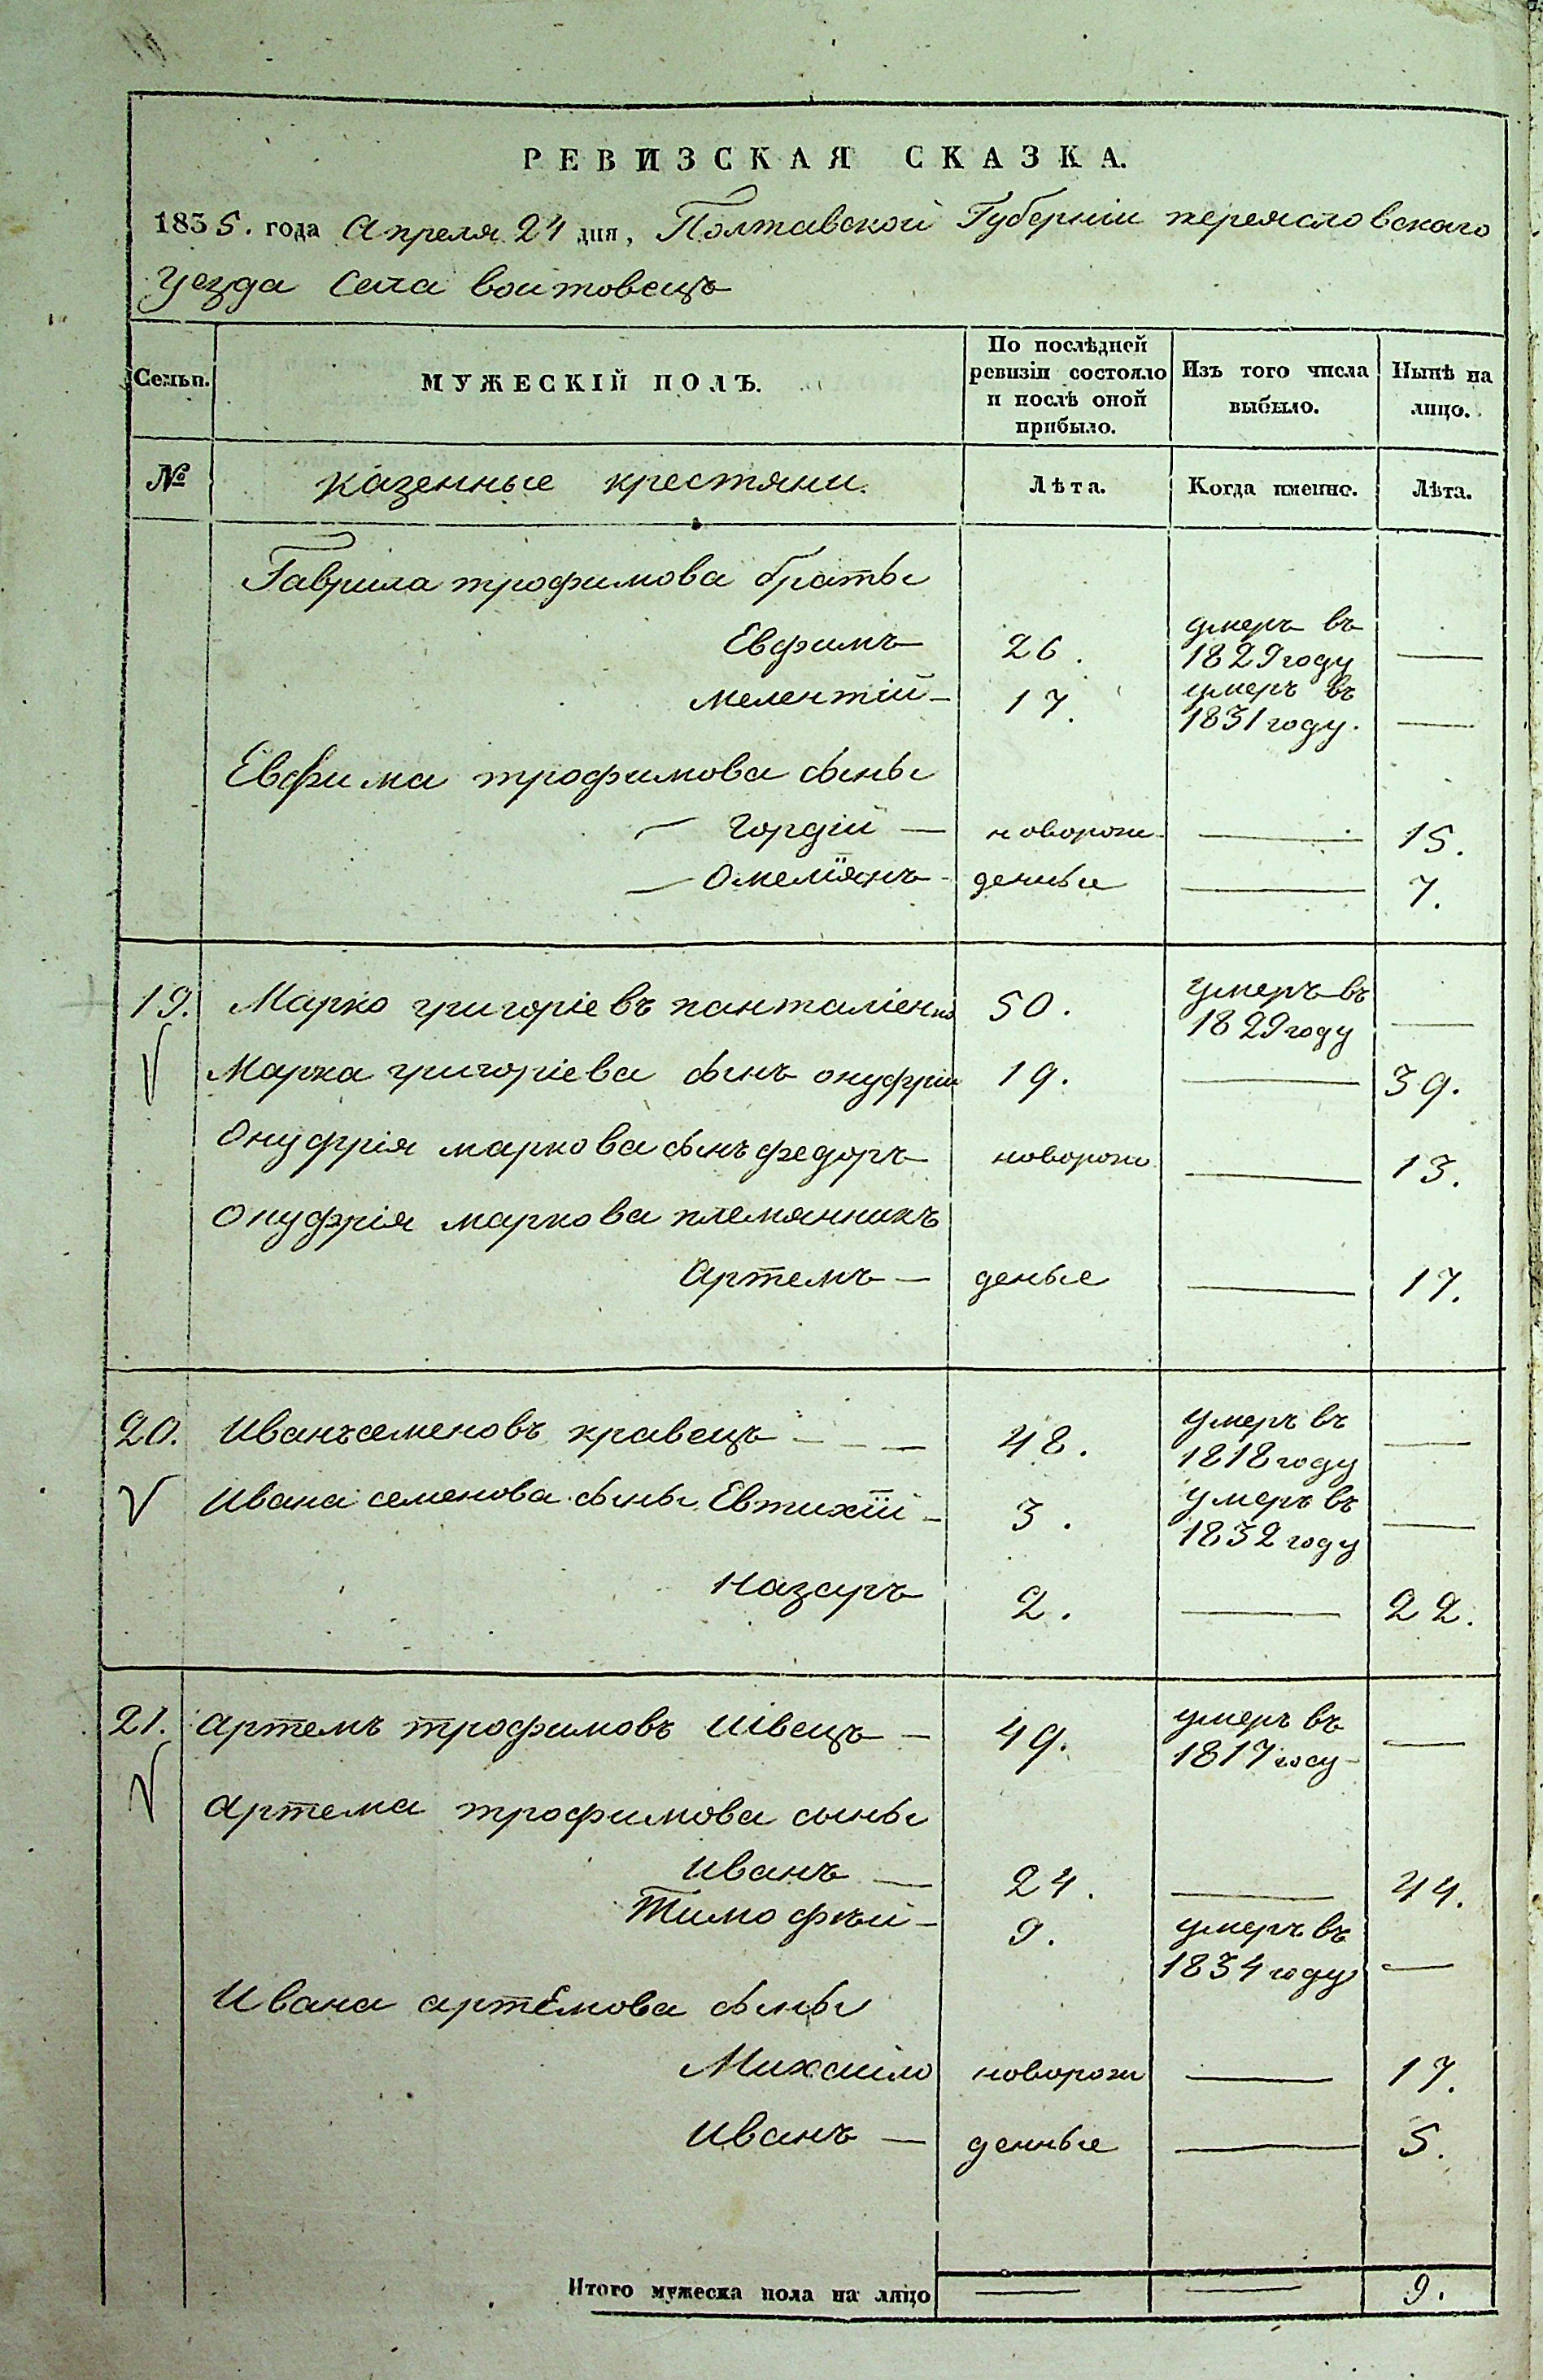 РЕВИЗСКАЯ СКАЗКА.
1835. года Апреля 24 дня, Полтавской Губерніи переясловского
уезда села воитовецъ
Семьи.
МУЖЕСКІЙ ПОЛЪ.
По послѣдней
ревизіи состояло
и послѣ оной
прибыло.
Изъ того числа
выбыло.
Нынѣ на
лицо.
№ казенные крестяни. Лѣта. Когда именно. Лѣта.
Гаврила трофимова браты
умеръ въ
Евфимъ 26. 1829 году —
умеръ въ
мелентій — 17. 1831 году. —
Евфима трофимова сыны
— Гордій — новорож — 15.
— Омелиянъ — денные — 7.
умеръ въ
19. Марко григоріевъ панталіенко 50. 1829 году —
Марка григоріева сынъ онуфрій 19. — 39.
Онуфрія маркова сынъ федоръ — новорож — 13.
Онуфрія маркова племянникъ
Артемъ — деные — 17.
умеръ въ
20. Иванъ семеновъ кравецъ — — — 48. 1818 году —
умеръ въ
Ивана семенова сыны Евтихій — 3. 1832 году —
Назаръ 2. — 22.
умеръ въ
21. Артемъ трофимовъ швецъ — 49. 1817 году —
Артема трофимова сыны
Иванъ — 24. — 44.
умеръ въ
Тимофѣй — 9. 1834 году —
Ивана артемова сыны
Михаило новорож — 17.
Иванъ — денные — 5.
Итого мужеска пола на лицо — — 9.